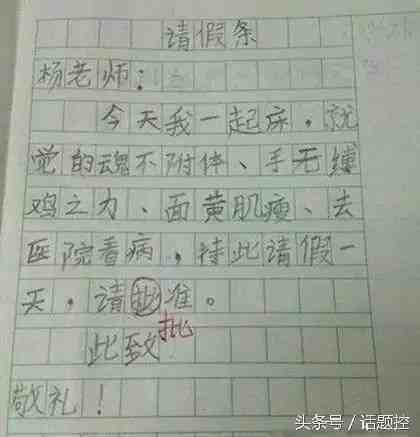 请假条
杨老师：
今天我一起床，就
觉的魂不附体、手无缚
鸡之力、面黄肌瘦、去
医院看病，持此请假一
天，请准。
批
此致
敬礼！
头条号／话题控